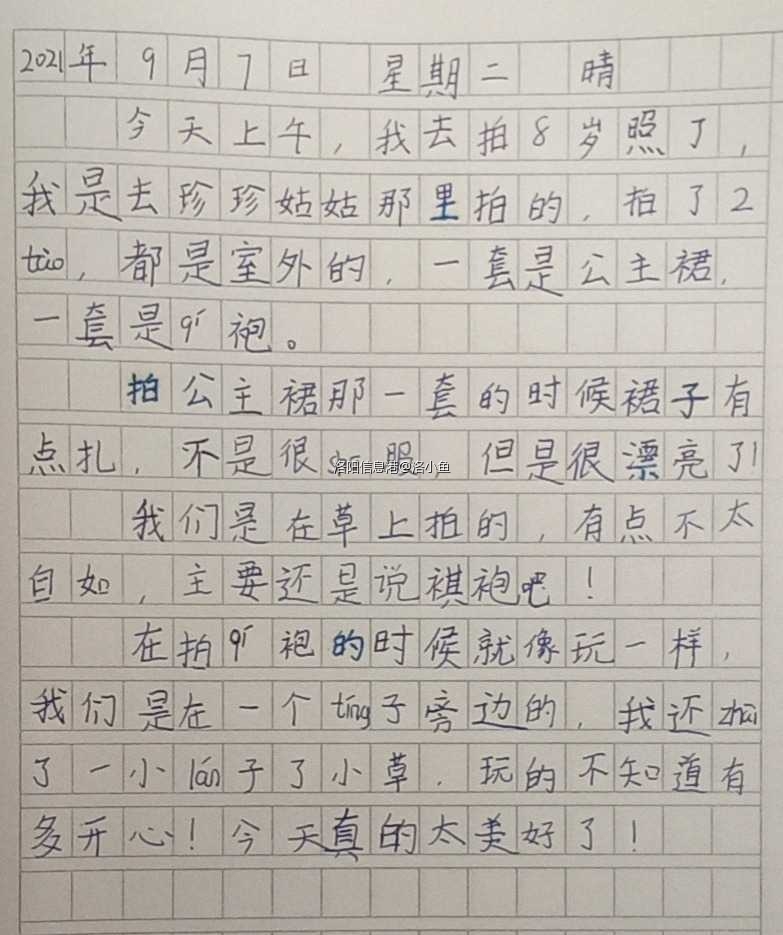 2021年 9月7日 星期二 晴
今天上午，我去拍8岁照了，
我是去珍珍姑姑那里拍的，拍了2
tào，都是室外的，一套是公主裙，
一套是qí袍。
拍公主裙那一套的时候裙子有
点扎，不是很 服，但是很漂亮了!
洛阳信息港@洛小鱼
我们是在草上拍的，有点不太
自如，主要还是说褀袍吧！
在拍qí袍的时候就像玩一样，
我们是在一个tíng子旁边的，我还zhāi
了一小lán子了小草．玩的不知道有
多开心！今天真的太美好了！